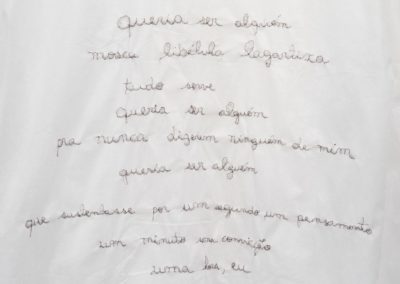 queria ser alguém
mosca libélula lagartixa
tudo serve
queria ser alguém
pra nunca dizerem ninguém de mim
queria ser alguém
que sustentasse por um segundo um pensamento
um minuto uma convicção
uma boa, eu